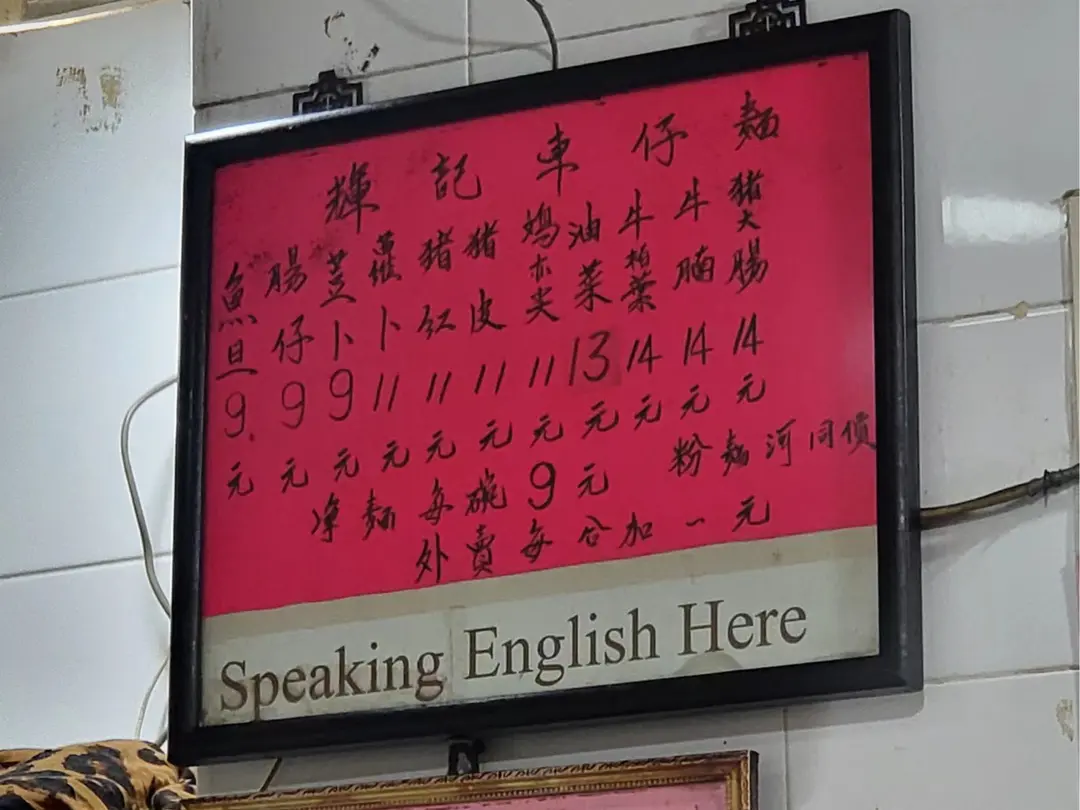 輝記車仔麵
魚旦9元
腸仔9元
荳卜9元
蘿卜11元
猪红11元
猪皮11元
亦尖11元
油菜13元
牛柏葉14元
牛腩14元
猪大腸14元
净麵每碗9元
粉麵河同價
外賣每合加一元
Speaking English Here